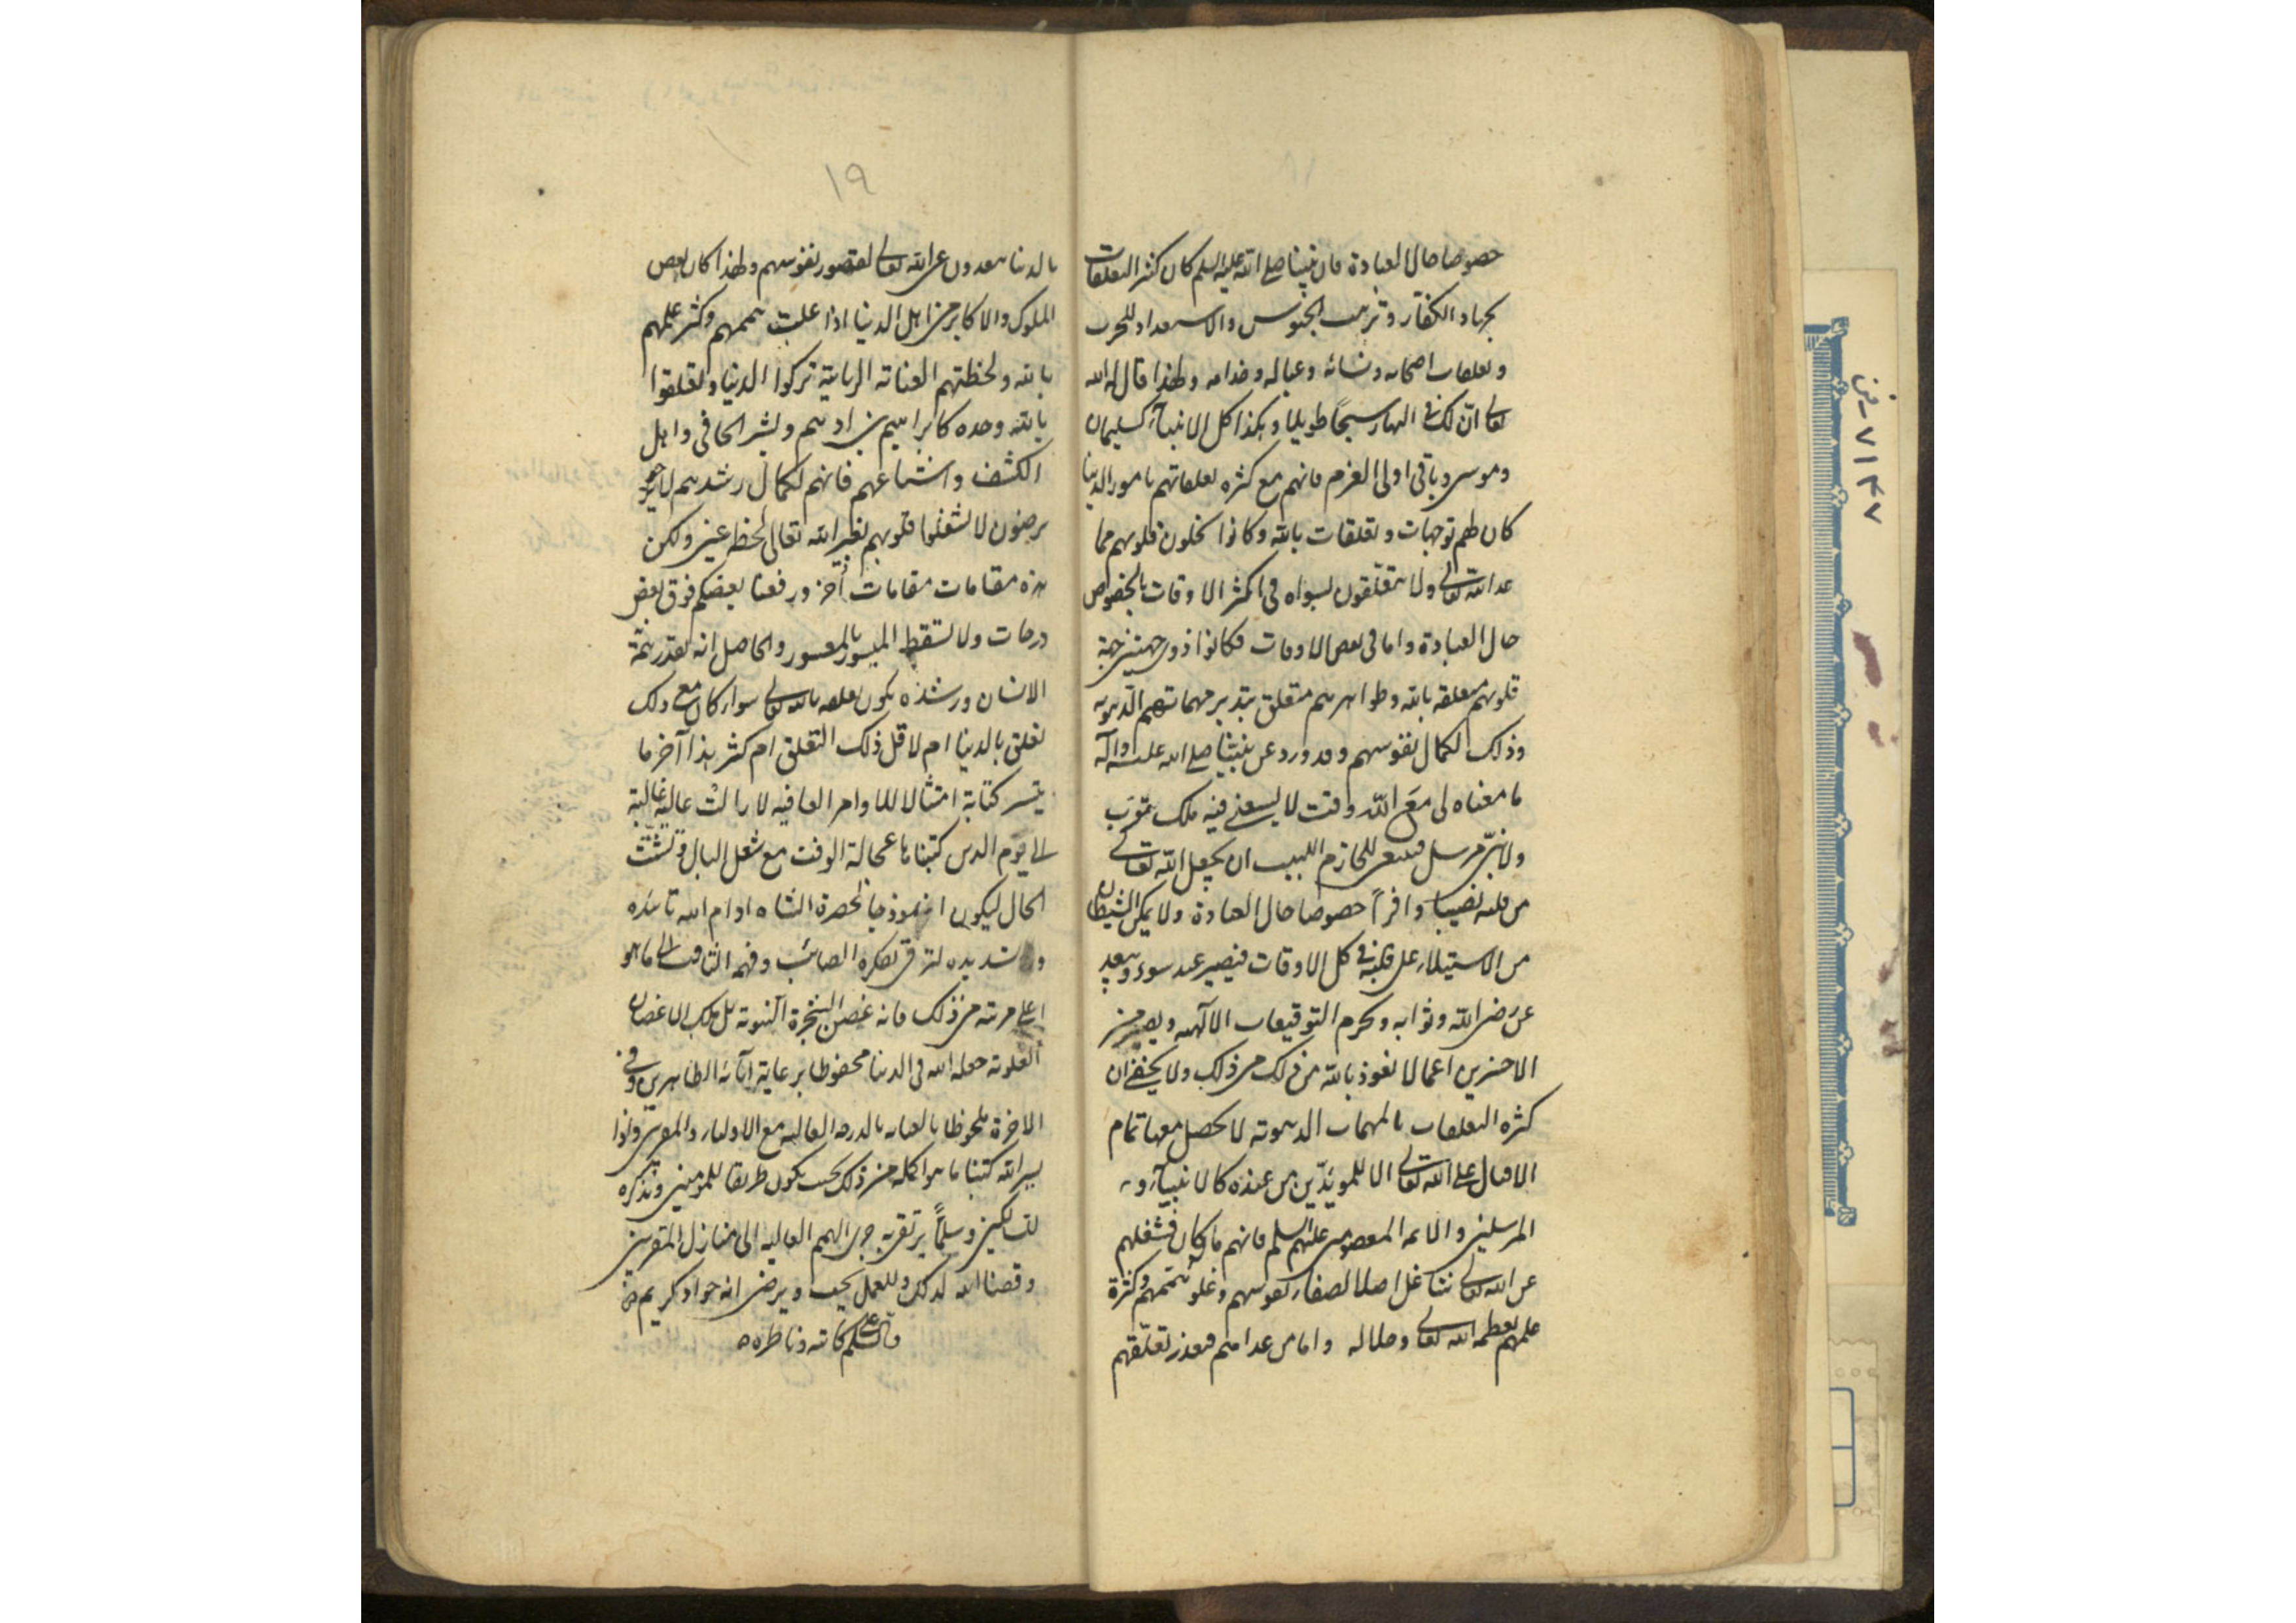 خصوصا حال العبادة فان نبينا صلى الله عليه السلم كان كثير التعلقات
بجهاد الكفار وترتيب الجيوش والاستعداد للحرب
وتعلقات اصحابه ونسائه وعياله وخدامه ولهذا قال له الله
تعالى ان لك في النهار سبحًا طويلا وهكذا كل الانبيآء كسليمان
وموسى وباقى اولى العزم فانهم مع كثرة تعلقاتهم بامور الدنيا
كان لهم توجهات وتعلقات بالله وكانوا يخلون قلوبهم مما
عدا الله تعالى ولا يتعلّقون بسواه فى اكثر الاوقات بالخصوص
حال العبادة واما فى بعض الاوقات فكانوا ذوى جهتين جهة
قلوبهم متعلقة بالله وظواهرهم متعلق بتدبير مهماتهم الدنيوية
وذلك لكمال نفوسهم وقد ورد عن نبيّنا صلى الله عليه وآله
ما معناه لى معَ اللّه وقت لا يسعنى فيه ملك مقرب
ولا نبىّ مرسل فينبغى للحازم اللبيب ان يجعل اللّه تعالى
من قلبه نصيبا وافراً خصوصا حال العبادة ولا يمكن الشيطان
من الاستيلاء على قلبه فى كل الاوقات فيصير عبد سوء ويبعد
عن رضى الله وثوابه ويحرم التوقيعات الآلهيه ويصير من
الاخسرين اعمالا نعوذ بالله من ذلك ولا يخفى ان
كثرة التعلقات بالمهمات الدنيوية لا يحصل معها تمام
الاقبال على الله تعالى الا للمويّدين من عنده كالانبيآء و
المرسلين والائمه المعصومين عليهم السلم فانهم ما كان يشغلهم
عن الله تعالى شاغل اصلا لصفاء نفوسهم وعلو هممهم وكثرة
علمهم بعظمة الله تعالى وجلاله واما من عداهم فبقدر تعلّقهم
١٩
بالدنيا يبعدون عن الله تعالى لقصور نفوسهم ولهذا كان بعض
الملوك والاكابر من اهل الدنيا اذا علت هممهم وكثر علمهم
بالله ولحظتهم العناية الربانية تركوا الدنيا وتعلقوا
بالله وحده كابراهيم بن ادهم وبشر الحافى واهل
الكشف واشياعهم فانهم لكمال رشدهم لا
يرضون لا يشغلوا قلوبهم بغير الله تعالى لحظة عين ولكن
هذه مقامات مقامات أخر ورفعنا بعضكم فوق بعض
درجات ولا يسقط الميسور بالمعسور والحاصل انه بقدر همّة
الانسان ورشده يكون تعلقه بالله تعالى سواء كان مع ذلك
تعلق بالدنيا ام لا قل ذلك التعلق ام كثر هذا آخر ما
تيسر كتابة امتثالا للاوامر العاليه لا زالت عاليةً غالبة
الى يوم الدين كتبنا ها عجالة الوقت مع شغل البال وتشتّت
الحال ليكون انموذجا لحضرة الشاه ادام الله تائيده
وتسديده لترقى بفكره الصائب وفهمه الثاقب الى ما هو
اعلى مرتبة من ذلك فانه غصن الشجرة النبوية بل ملك الاغصان
العلوية جعله الله فى الدنيا محفوظا برعاية آبائه الطاهرين وفى
الاخرة ملحوظا بالعنايه بالدرجه العاليه مع الاولياء والمقربين وانْ
يسر الله كتبنا ما هو اكمل من ذلك بحيث يكون طريقا للمومنين وتذكره
للسالكين وسلّماً يرتقى به ذوى الهمم العاليه الى منازل المقربين
وفقنا الله لذلك وللعمل بما يحب ويرضى انه جواد كريم
كاتبه وناظره
٧١٣٧ رض